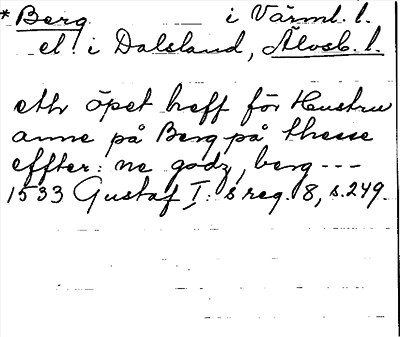 * Berg i Värml. l.
el. i Dalsland, Älvsb. l.
eth öpet breff för Hustru
anne på Berg på thesse
effter: ne godz, berg ---
1533 Gustaf I: s reg. 8, s. 249.